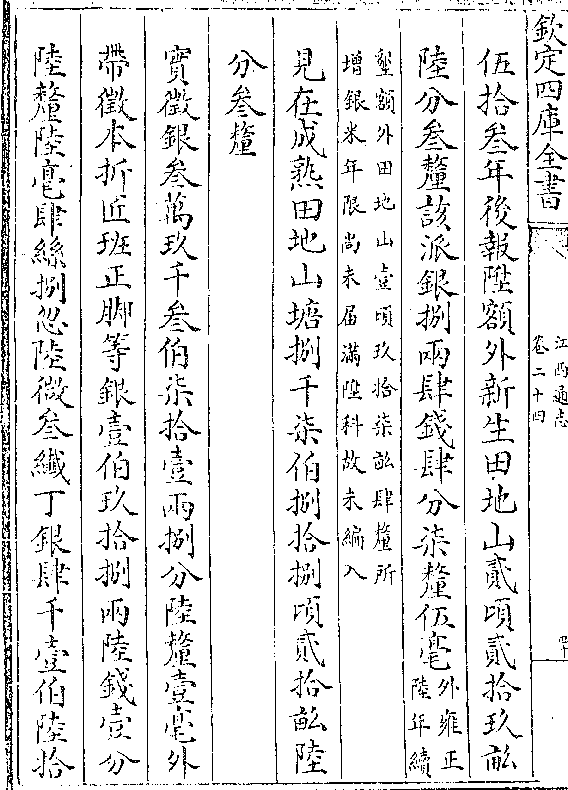 欽定四庫全書
江西通志
卷二十四
四十
伍拾叁年後報陞額外新生田地山貳頃貳拾玖畝
陸分叁釐該派銀捌兩肆錢肆分柒釐伍毫外雍正
陸年續
墾額外田地山壹頃玖拾柒畝肆釐所
增銀米年限尚未届滿陞科故未編入
見在成熟田地山塘捌千柒伯捌拾捌頃貳拾畝陸
分叁釐
實徵銀叁萬玖千叁伯柒拾壹兩捌分陸釐壹毫外
帶徵本折匠班正脚等銀壹伯玖拾捌兩陸錢壹分
陸釐陸毫肆絲捌忽陸微叁纖丁銀肆千壹伯陸拾